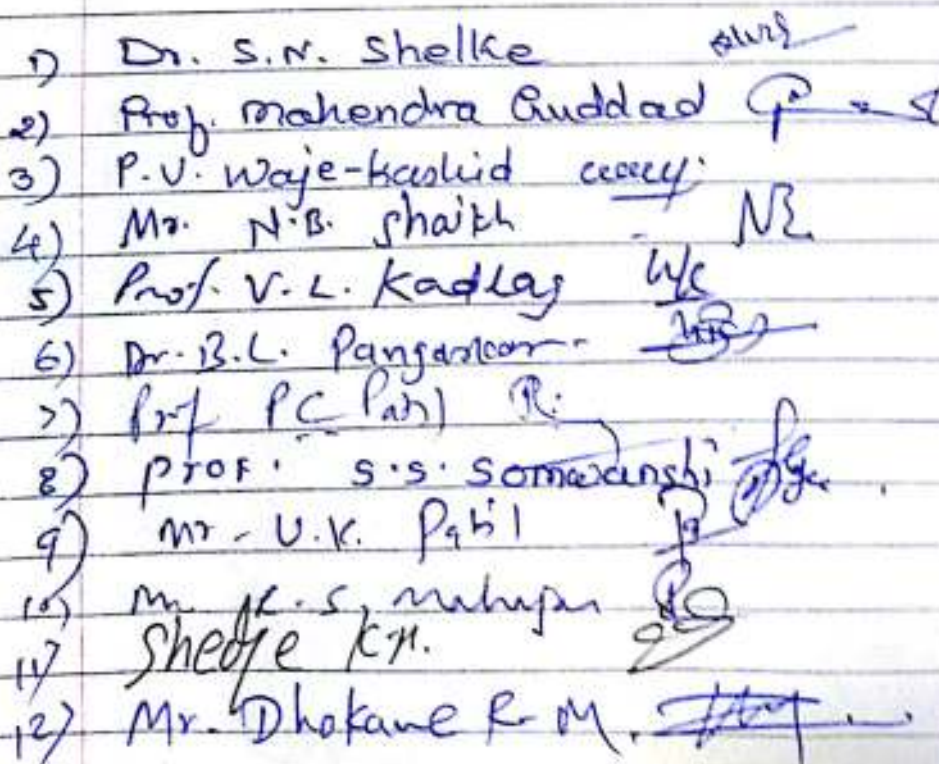 1) Dr. S.N. Shelke
2) Prof. Mahendra Guddad
3) P.V. Waje-Kashid
4) Mr. N.B. Shaikh
5) Prof. V.L. Kadlag
6) Dr. B.L. Pangarkar
7) Prof PC Patil
8) Prof. S.S. Somavanshi
9) Mr. U.K. Patil
10) Mr. K.S. Mahajan
11) Shedge K.
12) Mr. Dhokane R. M.